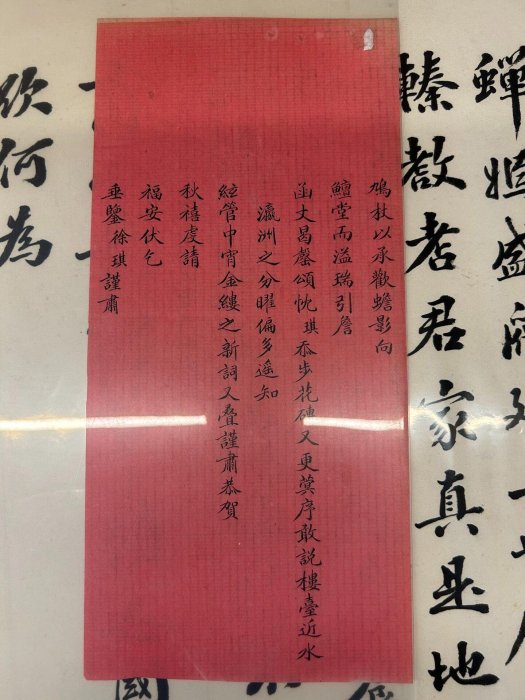 蟬嫣盛
教耆君家真是地
鳩杖以承歡蟾影向
鱣堂而溢瑞引詹
函丈曷罄頌忱琪忝步花磚又更蓂序敢說樓臺近水
瀛洲之分曜偏多遥知
絃管中宵金縷之新詞又叠謹肅恭賀
秋禧虔請
福安伏乞
垂鑒徐琪謹肅
國
欣何為